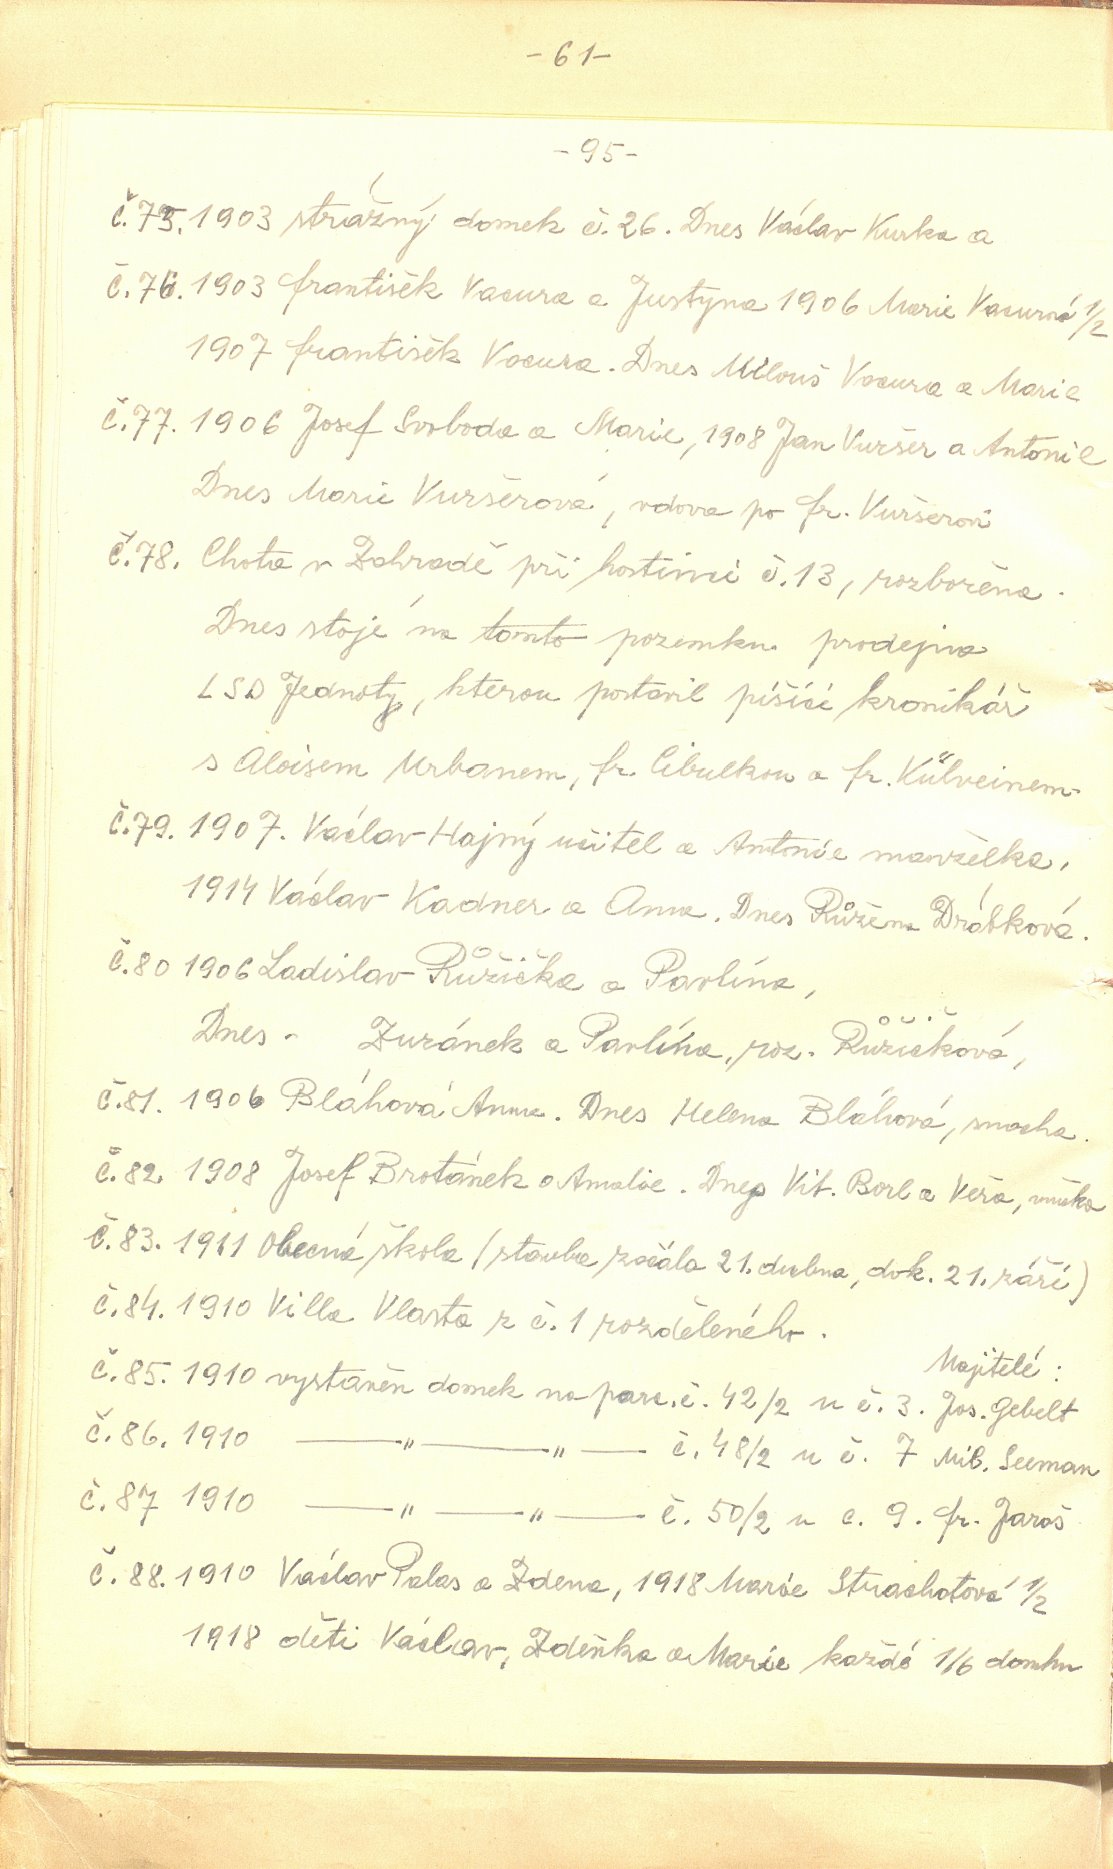 - 61 -
- 95 -
č. 75. 1903 strážný domek č. 26. Dnes Václav Kurka a
č. 76. 1903 František Vacura a Justýna 1906 Marie Vacurová 1/2
1907 František Vacura. Dnes Milouš Vacura a Marie
č. 77. 1906 Josef Svoboda a Marie, 1908 Jan Vuršer a Antonie
Dnes Marie Vuršerová, vdova po Fr. Vuršerovi
č. 78. Chata v Zahradě při hostinci č. 13, rozbořena.
Dnes stojí na tomto pozemku prodejna
LSD Jednoty, kterou postavil píšící kronikář
s Aloisem Urbanem, Fr. Cibulkou a Fr. Külveinem
č. 79. 1907. Václav Hajný učitel a Antonie manželka,
1914 Václav Kadner a Anna. Dnes Růžena Drábková.
č. 80 1906 Ladislav Růžička a Pavlína,
Dnes - Zuránek a Pavlína, roz. Růžičková,
č. 81. 1906 Bláhová Anna. Dnes Helena Bláhová, snacha.
č. 82. 1908 Josef Brotánek a Amalie. Dnes Vít. Borl a Věra, vnučka
č. 83. 1911 Obecná škola (stavba začala 21. dubna, dok. 21. září)
č. 84. 1910 Villa Vlasta z č. 1 rozděleného.
Majitelé:
č. 85. 1910 vystavěn domek na parc. č. 42/2 u č. 3. Jos. Gebelt
č. 86. 1910 —— " —— " —— č. 48/2 u č. 7 Mil. Seeman
č. 87 1910 —— " —— " —— č. 50/2 u c. 9. Fr. Jaroš
č. 88. 1910 Václav Palas a Zdena, 1918 Marie Strachotová 1/2
1918 děti Václav, Zdeňka a Marie každé 1/6 domku